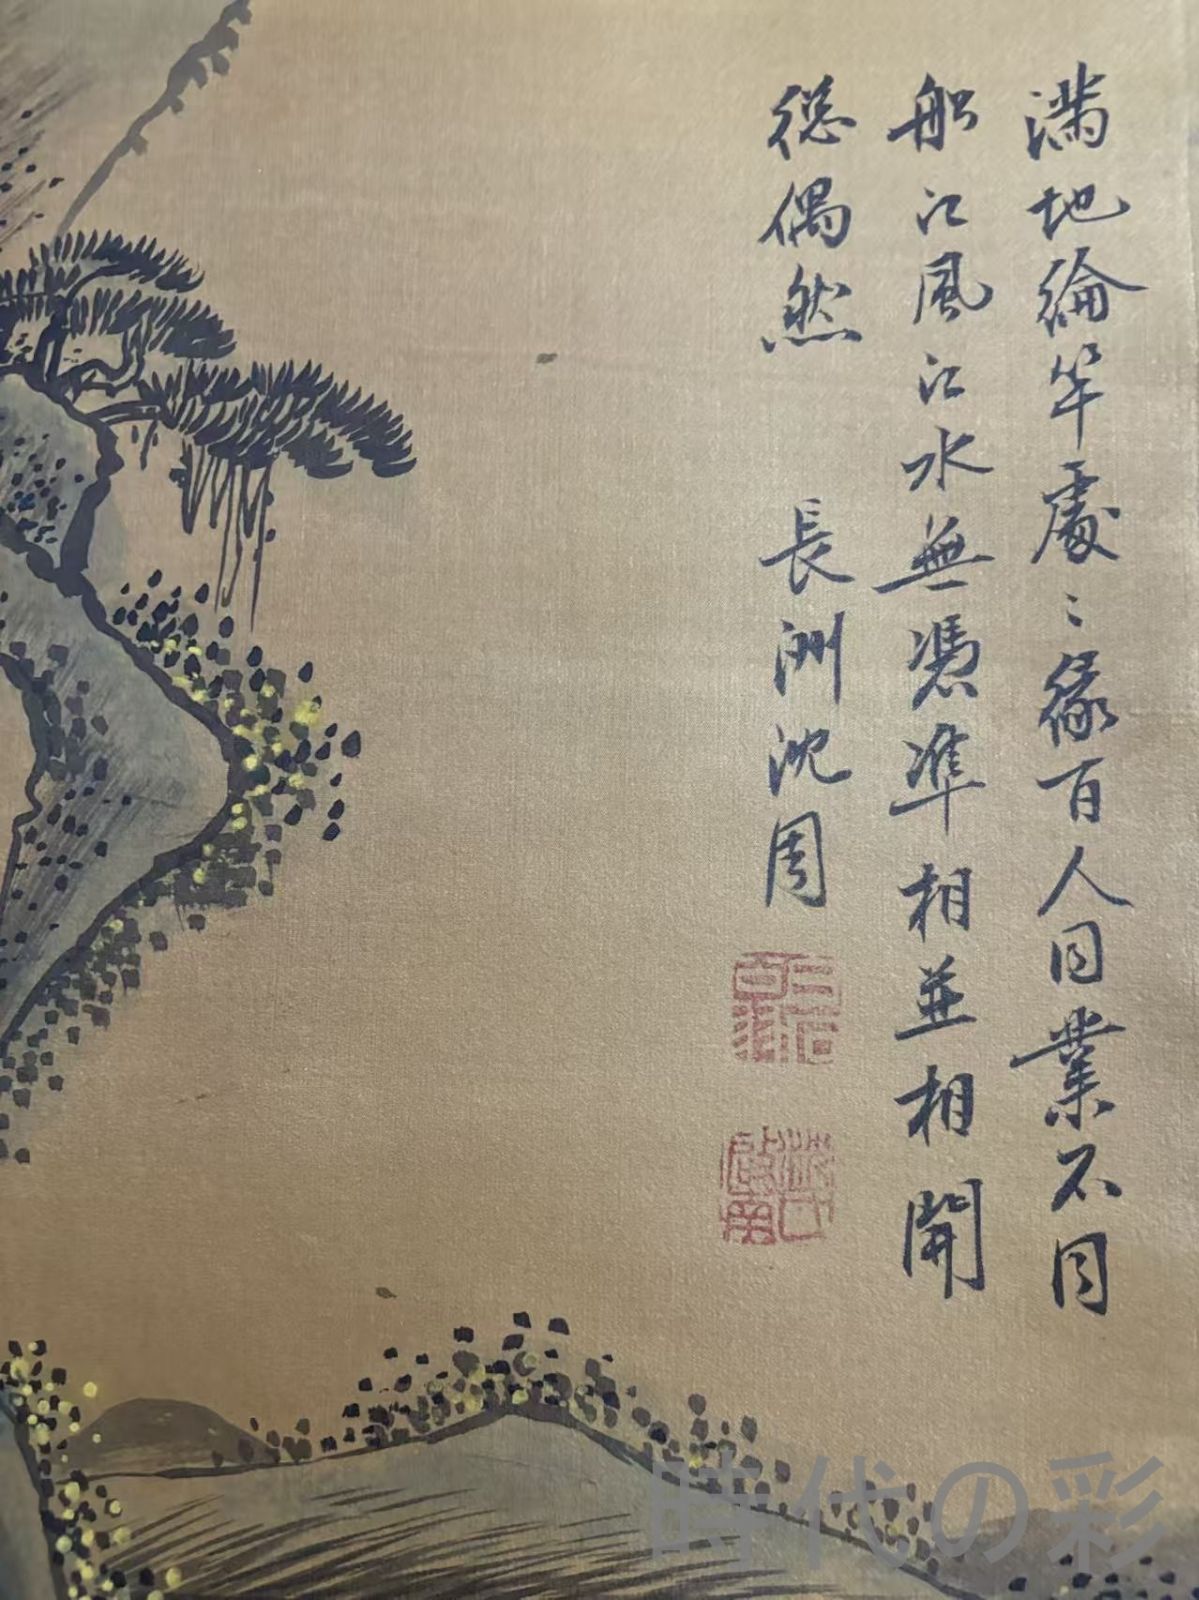 滿地綸竿處〻緣百人同業不同
船江風江水無憑準相並相開
總偶然 長洲沈周
啟南
時代の彩